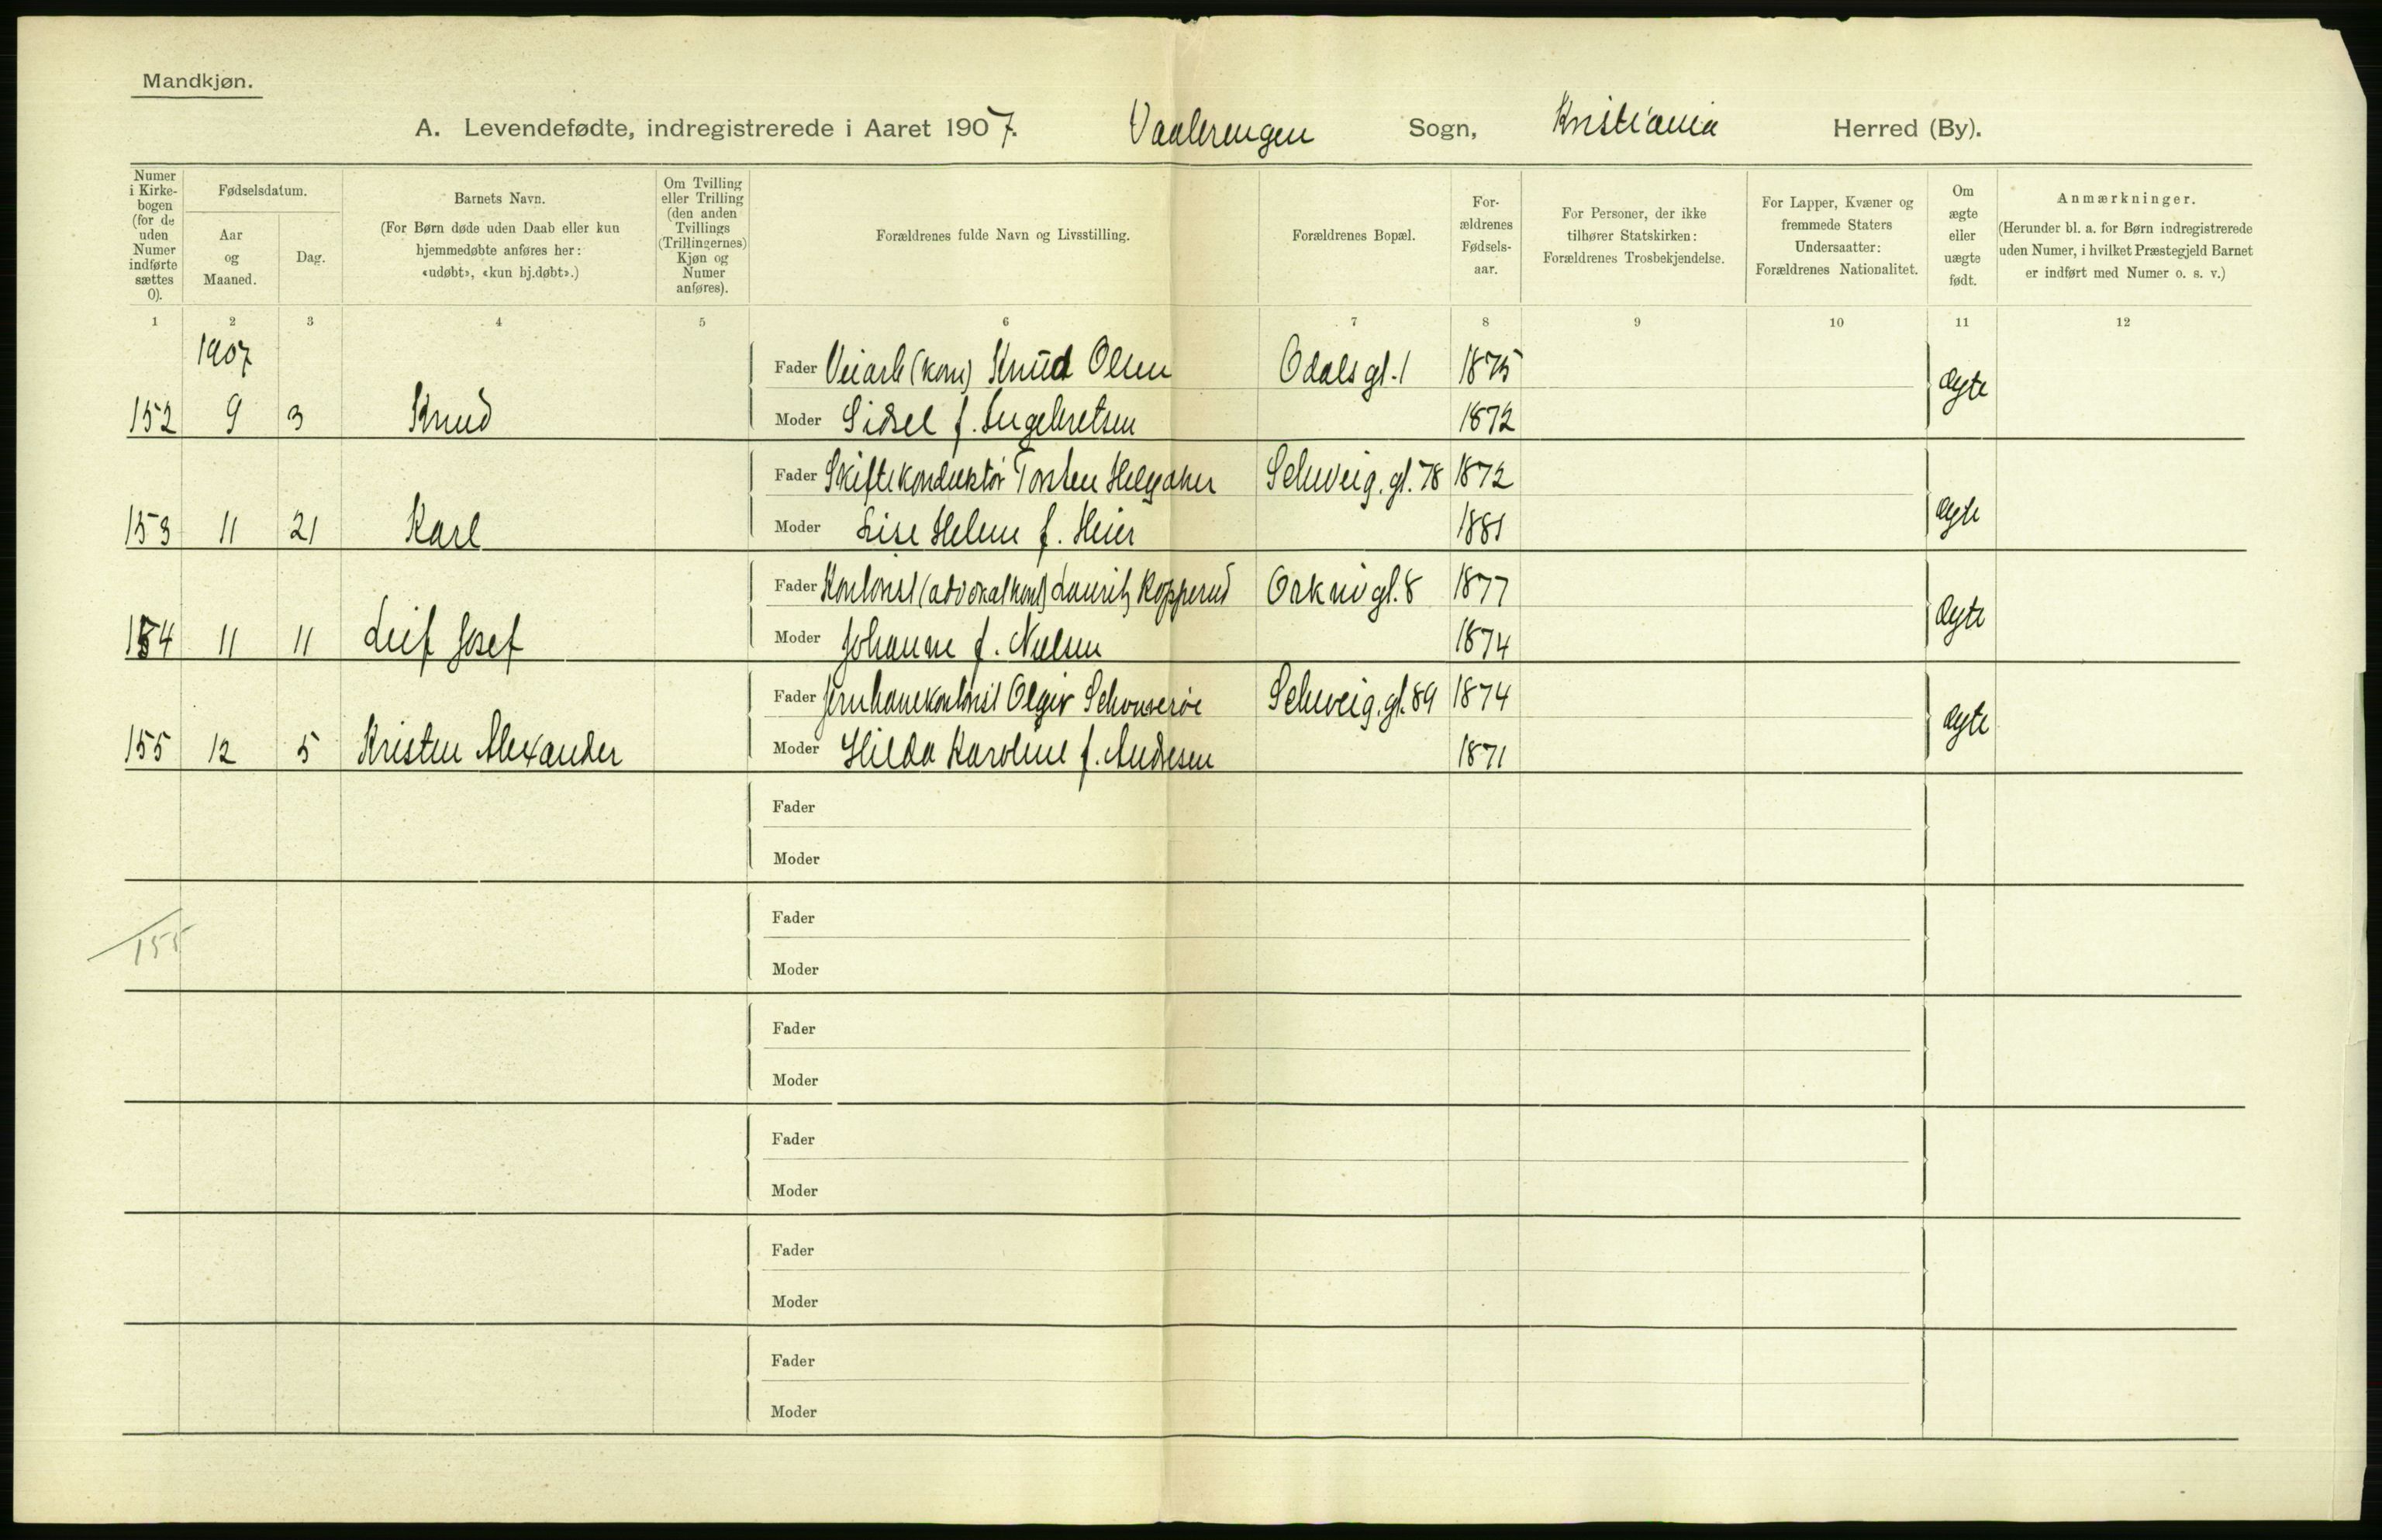 Mandkjøn.
A. Levendefødte, indregistrerede i Aaret 1907. Vaalerengen Sogn, Kristiania Herred (By).
Numer i Kirke-bogen (for de uden Numer indførte sættes 0).
Fødselsdatum.
Aar og Maaned.
Dag.
Barnets Navn.
(For Børn døde uden Daab eller kun
hjemmedøbte anføres her:
«udøbt», «kun hj.døbt».)
Om Tvilling
eller Trilling
(den anden
Tvillings
(Trillingernes)
Kjøn og
Numer
anføres).
Forældrenes fulde Navn og Livsstilling.
Forældrenes Bopæl.
For-
ældrenes
Fødsels-
aar.
For Personer, der ikke
tilhører Statskirken:
Forældrenes Trosbekjendelse.
For Lapper, Kvæner og
fremmede Staters
Undersaatter:
Forældrenes Nationalitet.
Om
ægte
eller
uægte
født.
Anmærkninger.
(Herunder bl. a. for Børn indregistrerede
uden Numer, i hvilket Præstegjeld Barnet
er indført med Numer o. s. v.)
1 2 3 4 5 6 7 8 9 10 11 12
1907
Fader Veiarb (kom) Knud Olsen Odalsgt. 1 1875 ægte
152 9 3 Knud Moder Sidsel f. Engebretsen 1872
Fader Skiftekonduktør Torsten Helgaker Schweig. gt. 78 1872 ægte
153 11 21 Karl Moder Lise Helene f. Heier 1881
Fader Kontorist (advokatkont) Lauritz Kopperud Orknøgt. 8 1877 ægte
154 11 11 Leif Josef Moder Johanne f. Nielsen 1874
Fader Jernbanekontorist Olger Schouverøe Schweig. gt. 89 1874 ægte
155 12 5 Kristen Alexander Moder Hilda Karoline f. Andresen 1871
Fader
Moder
Fader
155
Moder
Fader
Moder
Fader
Moder
Fader
Moder
Fader
Moder